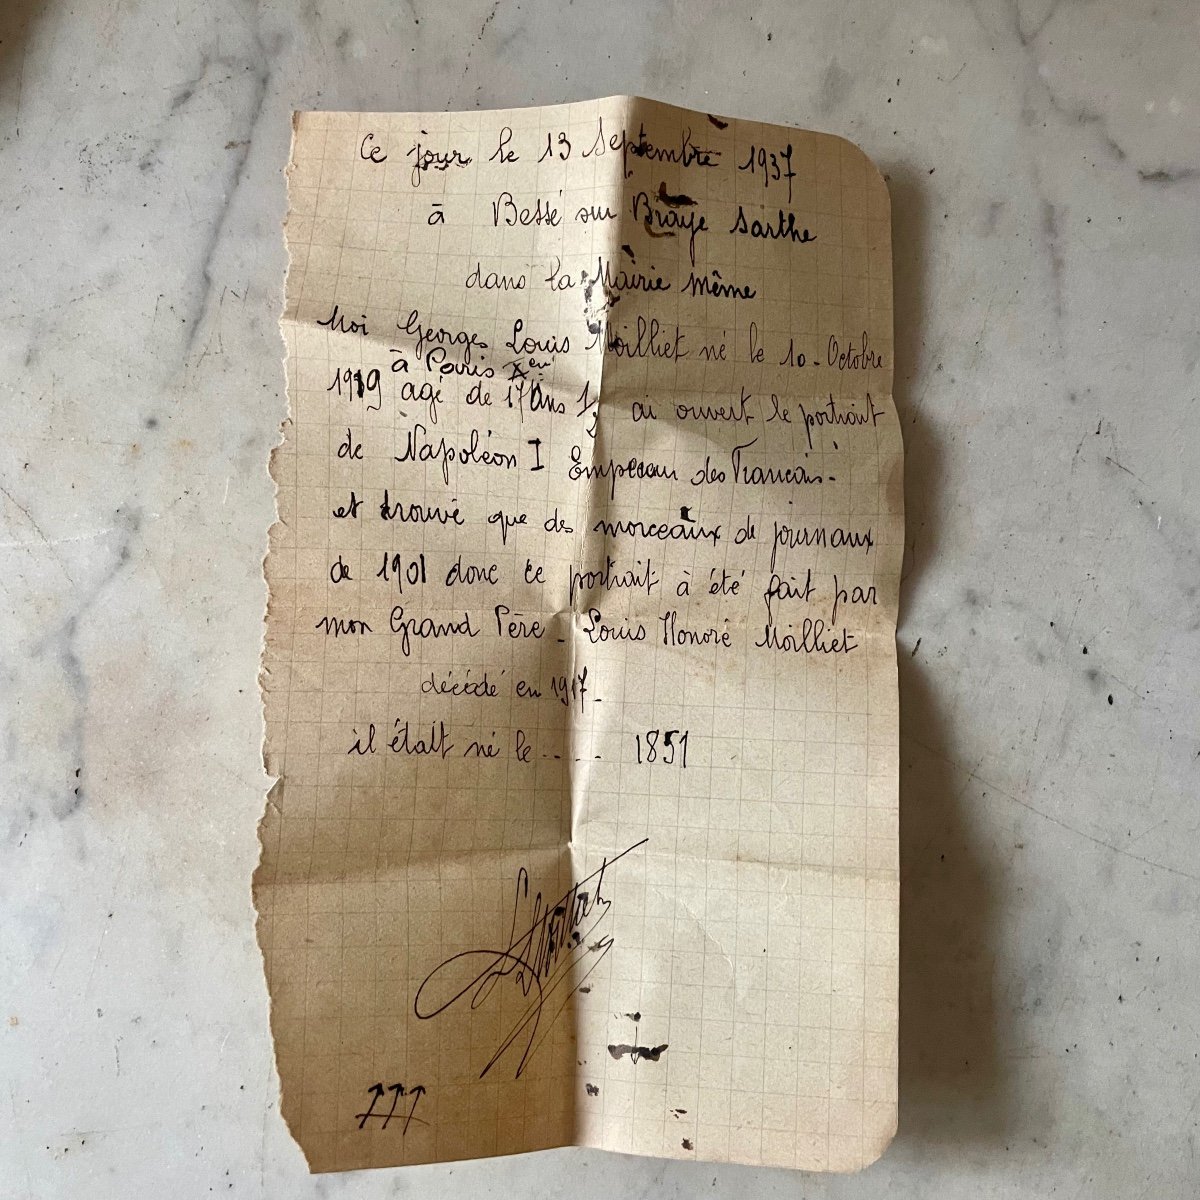 Ce jour le 13 Septembre 1937
à Bessé sur Braye Sarthe
dans la Mairie même
Moi Georges Louis Moilliet né le 10 - Octobre
à Paris Xem
1919 agé de 17 ans 1/2 ai ouvert le portrait
de Napoléon I Empereur des Francais -
et trouvé que des morceaux de journaux
de 1901 donc ce portrait à été fait par
mon Grand Père - Louis Honoré Moilliet
décédé en 1917 -
il était né le - - - - 1851